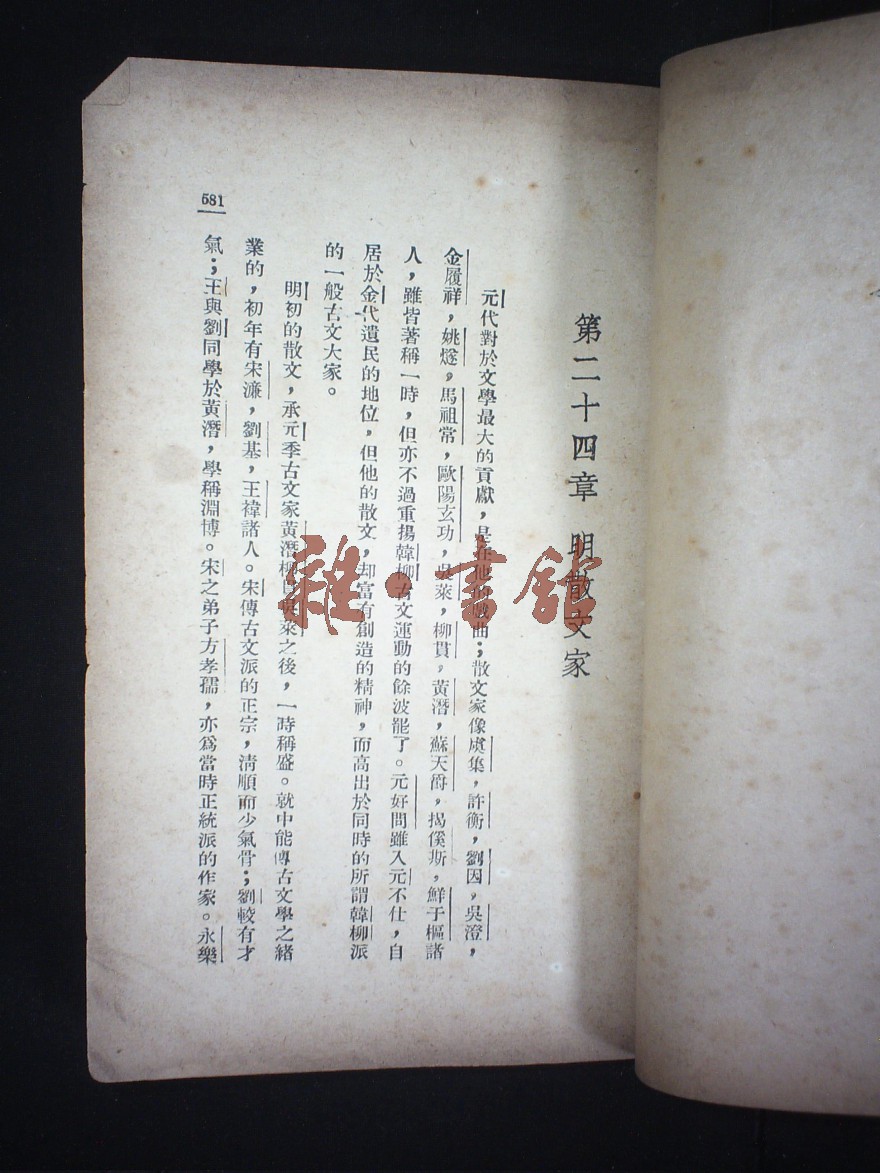 第二十四章 明散文家
元代對於文學最大的貢獻，是在他的戲曲；散文家像虞集，許衡，劉因，吳澄，
金履祥，姚燧，馬祖常，歐陽玄功，吳萊，柳貫，黃溍，蘇天爵，揭傒斯，鮮于樞諸
人，雖皆著稱一時，但亦不過重揚韓柳古文運動的餘波罷了。元好問雖入元不仕，自
居於金代遺民的地位，但他的散文，却富有創造的精神，而高出於同時的所謂韓柳派
的一般古文大家。
明初的散文，承元季古文家黃溍柳貫吳萊之後，一時稱盛。就中能傳古文學之緒
業的，初年有宋濂，劉基，王褘諸人。宋傳古文派的正宗，淸順而少氣骨；劉較有才
氣；王與劉同學於黃溍，學稱淵博。宋之弟子方孝孺，亦爲當時正統派的作家。永樂
581
雜·書舘